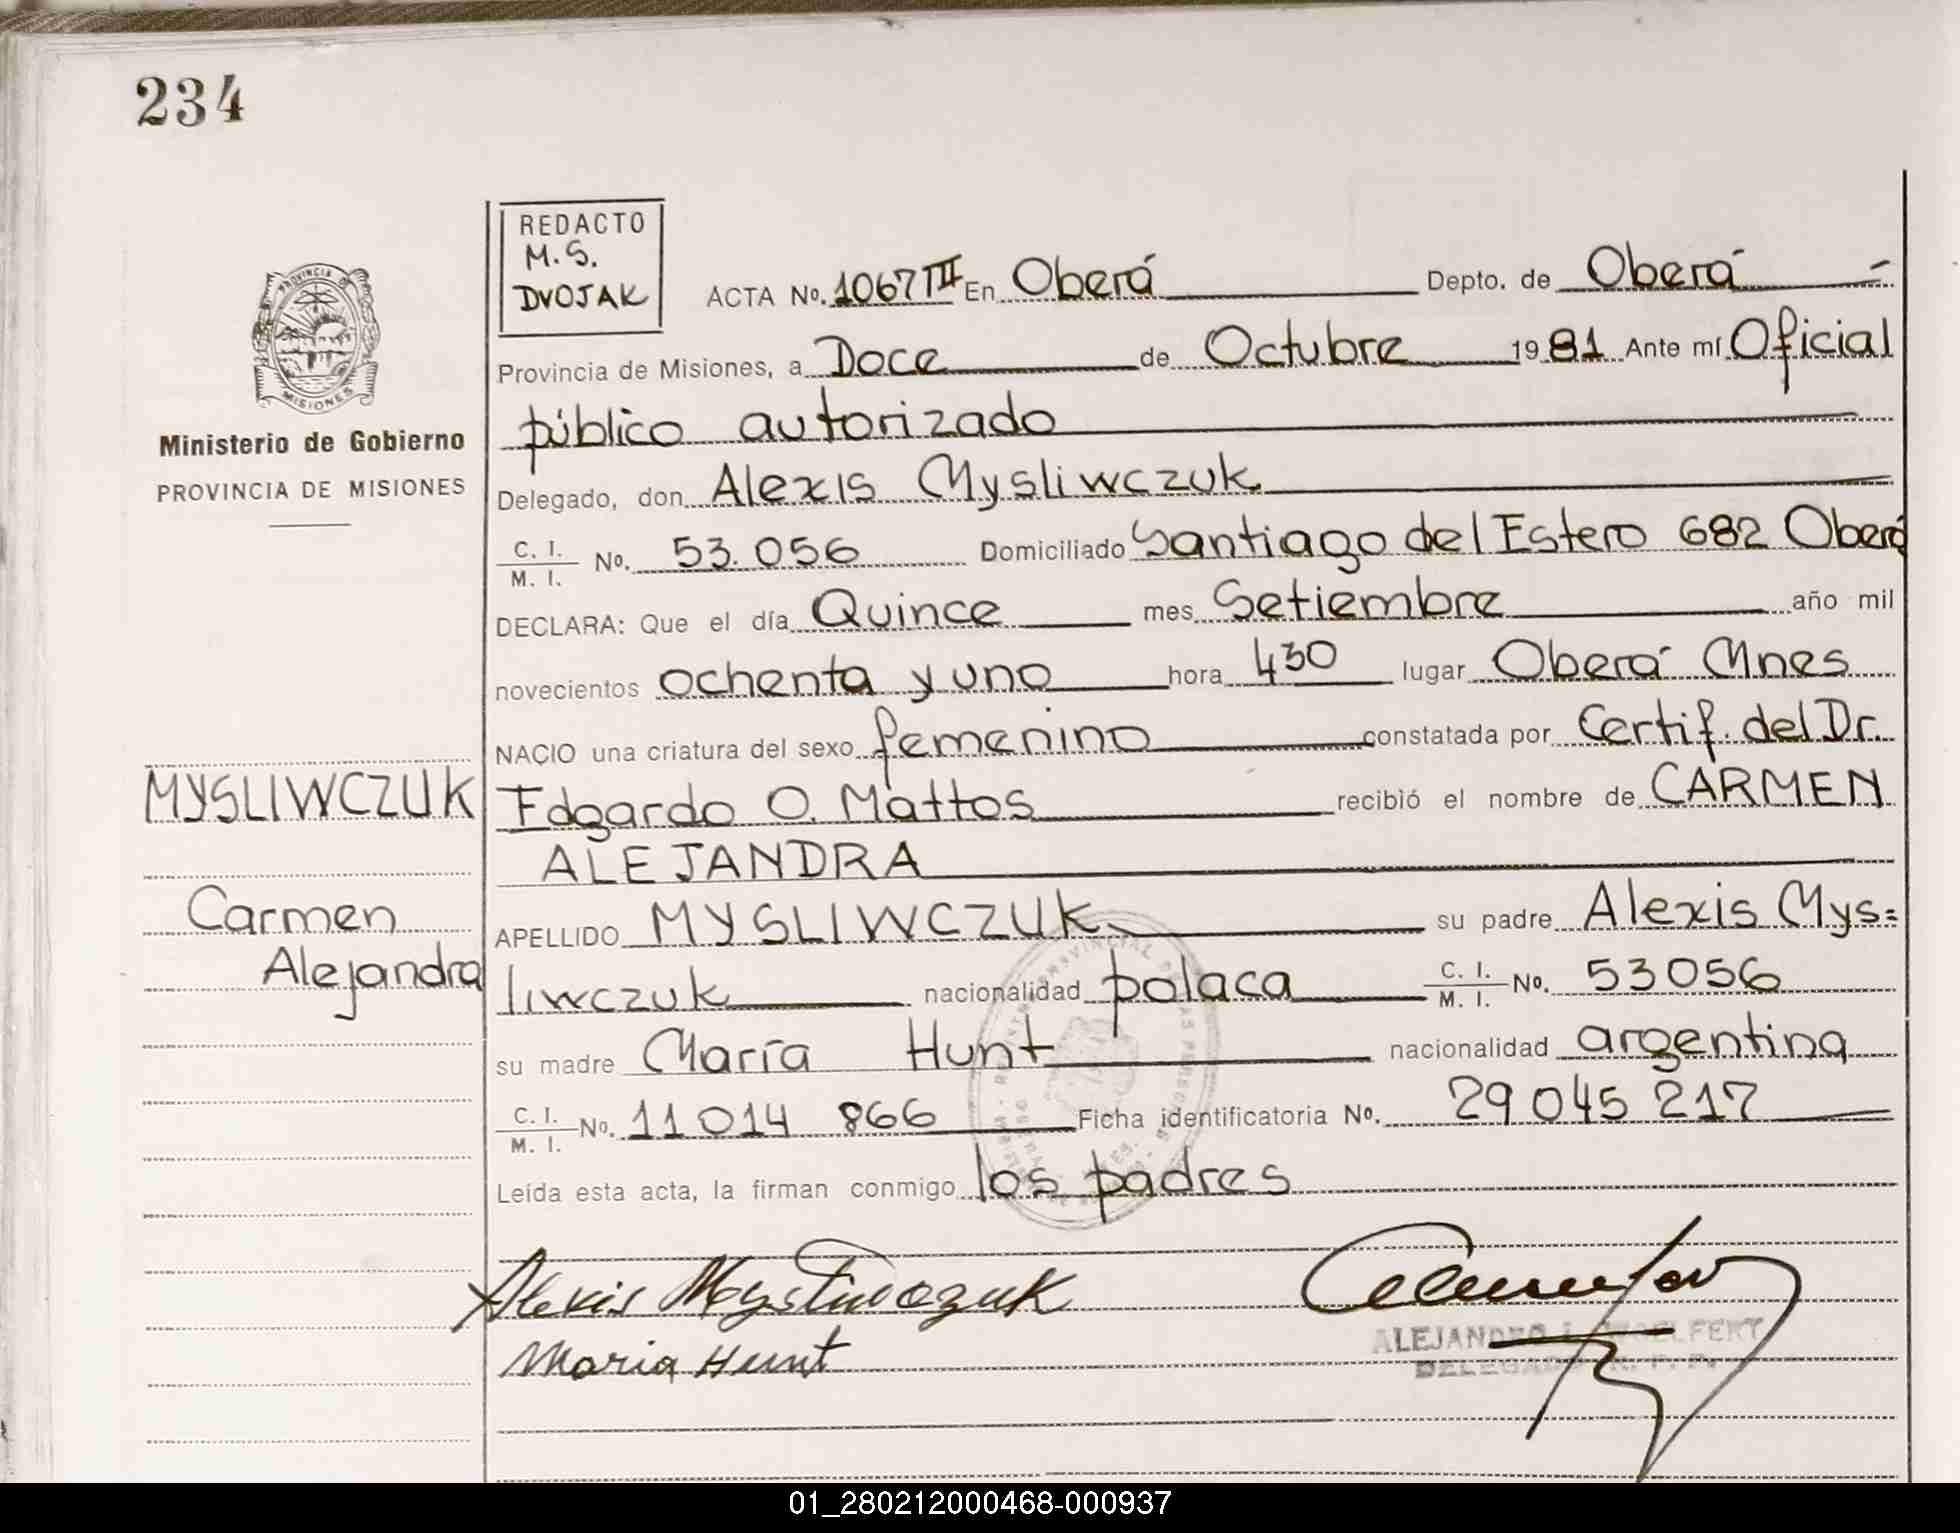 234
REDACTO
M.S.
DVOJAK
PROVINCIA DE
MISIONES
Ministerio de Gobierno
PROVINCIA DE MISIONES
MYSLIWCZUK
Carmen
Alejandra
ACTA No. 1067 III En Oberá Depto. de Oberá
Provincia de Misiones, a Doce de Octubre 1981 Ante mí Oficial
público autorizado
Delegado, don Alexis Mysliwczuk
C. I. / M. I. No. 53.056 Domiciliado Santiago del Estero 682 Oberá
DECLARA: Que el día Quince mes Setiembre año mil
novecientos ochenta y uno hora 430 lugar Oberá Mnes
NACIO una criatura del sexo femenino constatada por Certif. del Dr.
Edgardo O. Mattos recibió el nombre de CARMEN
ALEJANDRA
APELLIDO MYSLIWCZUK su padre Alexis Mys=
liwczuk nacionalidad polaca C. I. / M. I. No. 53056
su madre María Hunt nacionalidad argentina
C. I. / M. I. No. 11014 866 Ficha identificatoria No. 29045217
Leída esta acta, la firman conmigo los padres
Alexis Mysliwczuk
Maria Hunt
ALEJANDRO
DELEGADO R. P. P.
01_280212000468-000937